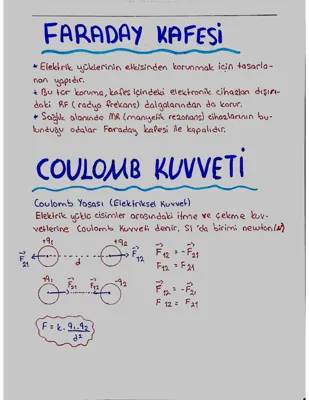 FARADAY KAFESİ
* Elektrik yüklerinin etkisinden korunmak için tasarla-
nan yapıdır.
* Bu tür koruma, kafes içindeki elektronik cihazları dışarı-
daki RF (radyo frekans) dalgalarından da korur.
* Sağlık alanında MR (manyetik rezonans) cihazlarının bu-
lunduğu odalar Faraday kafesi ile kapalıdır.
COULOMB KUVVETİ
Coulomb Yasası (Elektriksel Kuvvet)
Elektrik yüklü cisimler arasındaki itme ve çekme kuv-
vetlerine Coulomb Kuvveti denir. SI'da birimi newton (N)
+q1 +q2 F⃗12 = -F⃗21
F⃗21 d F⃗12 F12 = F21
+q1 F⃗21 F⃗12 -q2 F⃗12 = -F⃗21
F12 = F21
F = k. q1.q2 / d²